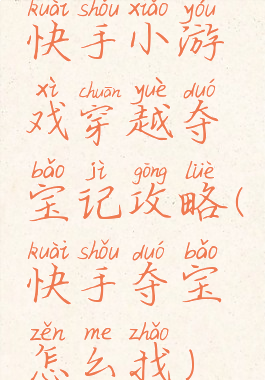 kuài shǒu xiǎo yóu
快手小游
xì chuān yuè duó
戏穿越夺
bǎo jì gōng lüè
宝记攻略(
kuài shǒu duó bǎo
快手夺宝
zěn me zhǎo
怎么找)